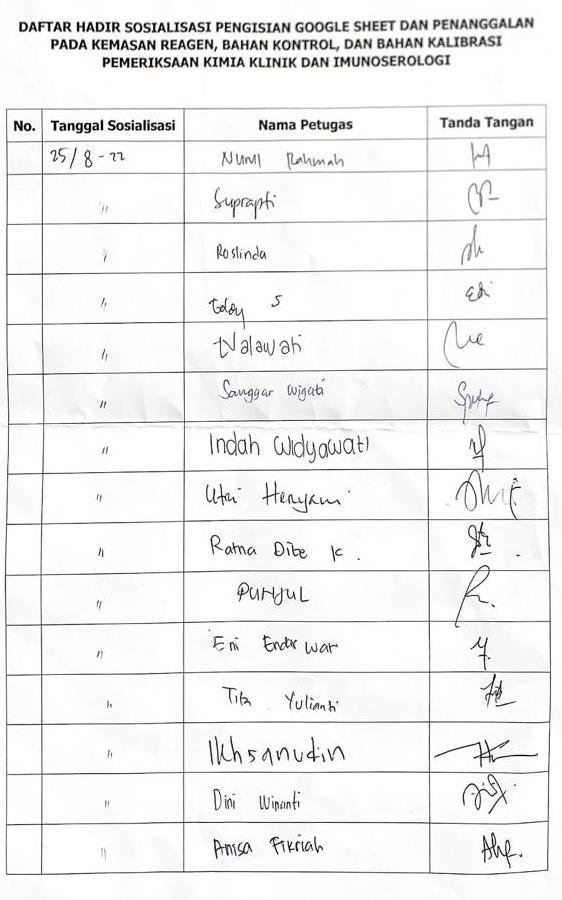 DAFTAR HADIR SOSIALISASI PENGISIAN GOOGLE SHEET DAN PENANGGALAN
PADA KEMASAN REAGEN, BAHAN KONTROL, DAN BAHAN KALIBRASI
PEMERIKSAAN KIMIA KLINIK DAN IMUNOSEROLOGI
No. Tanggal Sosialisasi Nama Petugas Tanda Tangan
25/8-22 Nurul Rahmah
" Suprapti
" Roslinda
" Eddy S
" Nalawati
" Sanggar Wigati
" Indah Widyawati
" Utri Heryani
" Ratna Dite K.
"
" Eni Endar War
" Tita Yulianti
" Ikhsanudin
" Dini Winanti
" Anisa Fikriah